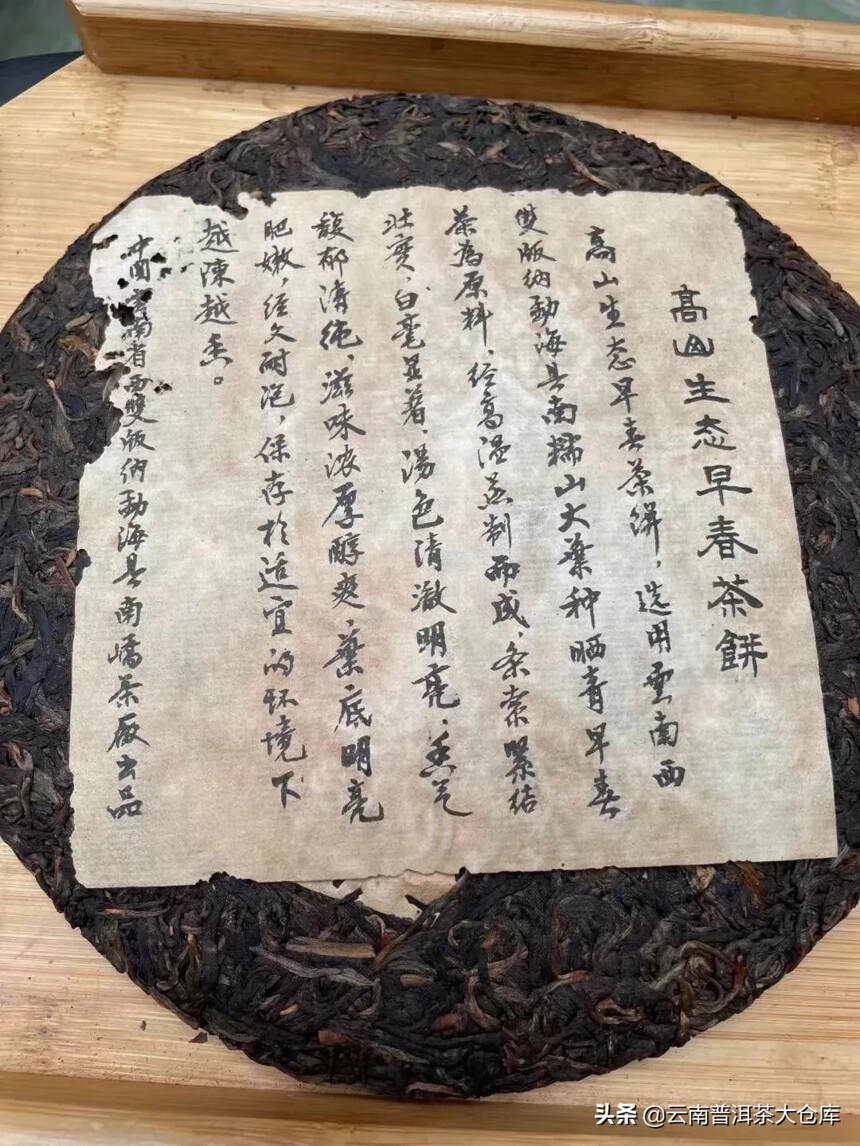 髙山生态早春茶餅
高山生态早春茶餅，选用雲南西
雙版纳勐海县南糯山大葉种晒青早春
茶為原料，经高温蒸制而成，条索緊结
壮實，白毫显著，湯色清澈明亮，香气
馥郁清纯，滋味浓厚醇爽，葉底明亮
肥嫩，经久耐泡，保存於适宜的环境下
越陳越香。
中国雲南省西雙版纳勐海县南嶠茶廠出品
头条 @云南普洱茶大仓库